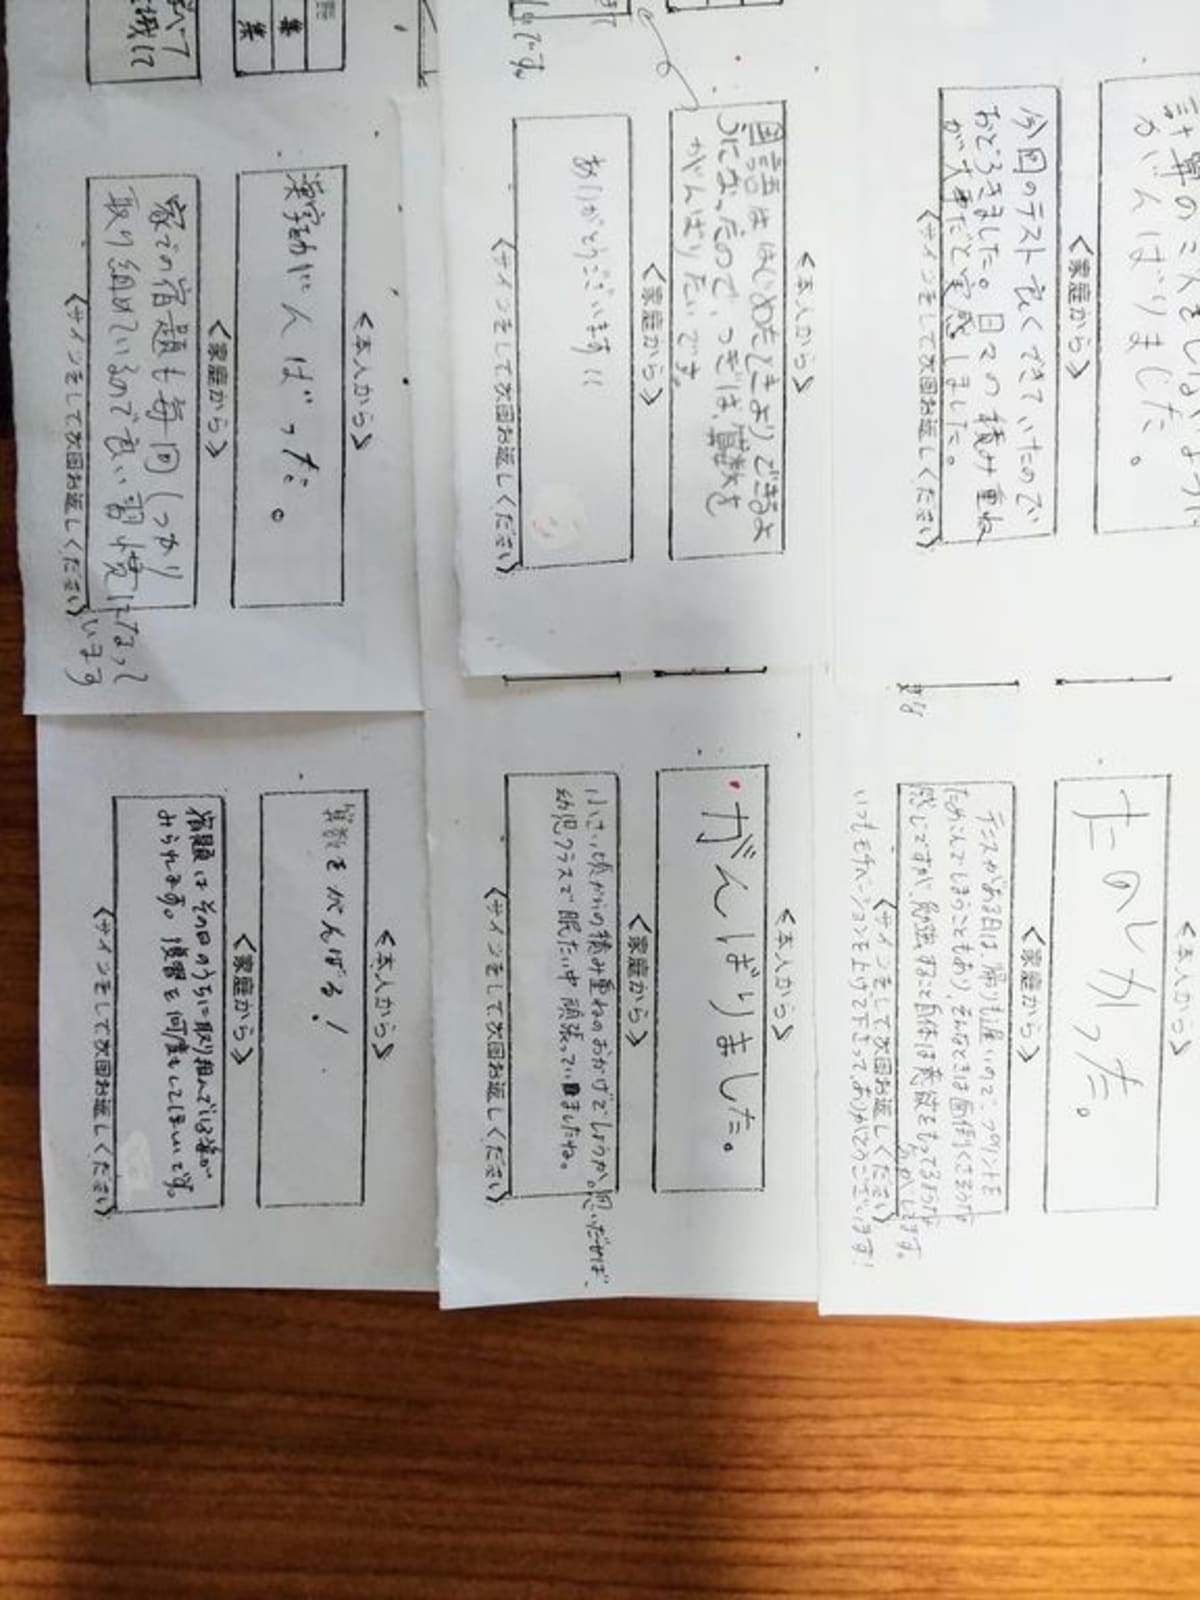 計算のミスをしないように
がんばりました。
<家庭から>
今回のテスト良くできていたので
おどろきました。日々の積み重ね
が大事だと実感しました。
<サインをして次回お返しください>
<本人から>
国語ははじめたときよりできるよ
うになったので、つぎは、算数を
がんばりたいです。
<家庭から>
ありがとうございます!!
<サインをして次回お返しください>
<本人から>
漢字がんばった。
<家庭から>
家での宿題も毎回しっかり
取り組めているので良い習慣になって
います
<サインをして次回お返しください>
<本人から>
たのしかった。
<家庭から>
テニスがある日は、帰りも遅いので、プリントを
ためこんでしまうこともあり、そんなときは面倒くさそうな
感じですが、勉強すること自体は意欲をもってるような
気がします。
いつもモチベーションを上げて下さって、ありがとうございます!
<サインをして次回お返しください>
<本人から>
がんばりました。
<家庭から>
小さい頃からの積み重ねのおかげでしょうか。思いだせば、
幼児クラスで眠たい中頑張っていましたね。
<サインをして次回お返しください>
<本人から>
算数をがんばる!
<家庭から>
宿題はその日のうちに取り組んでいる姿が
みられます。復習を何度もしてほしいです。
<サインをして次回お返しください>